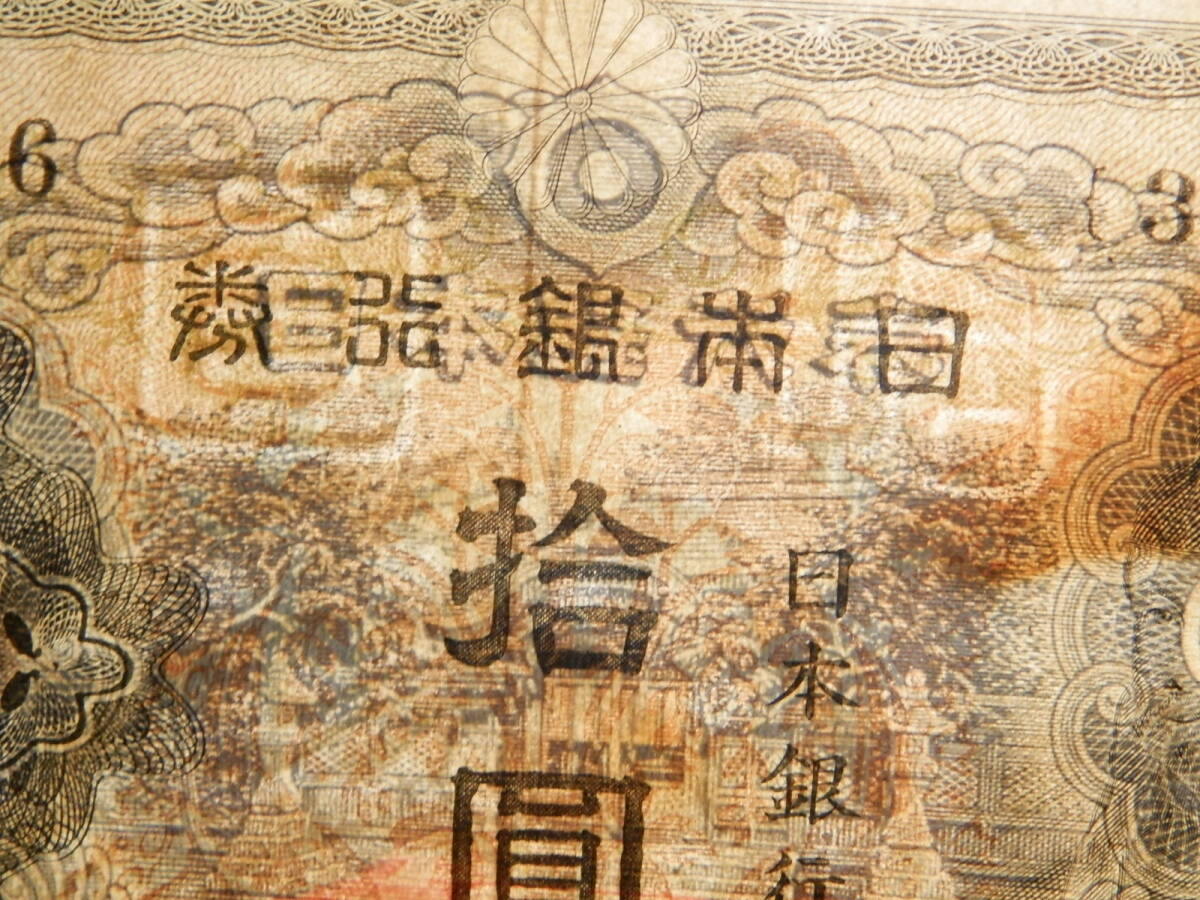 6
3
日本銀行券
日本銀行
拾圓